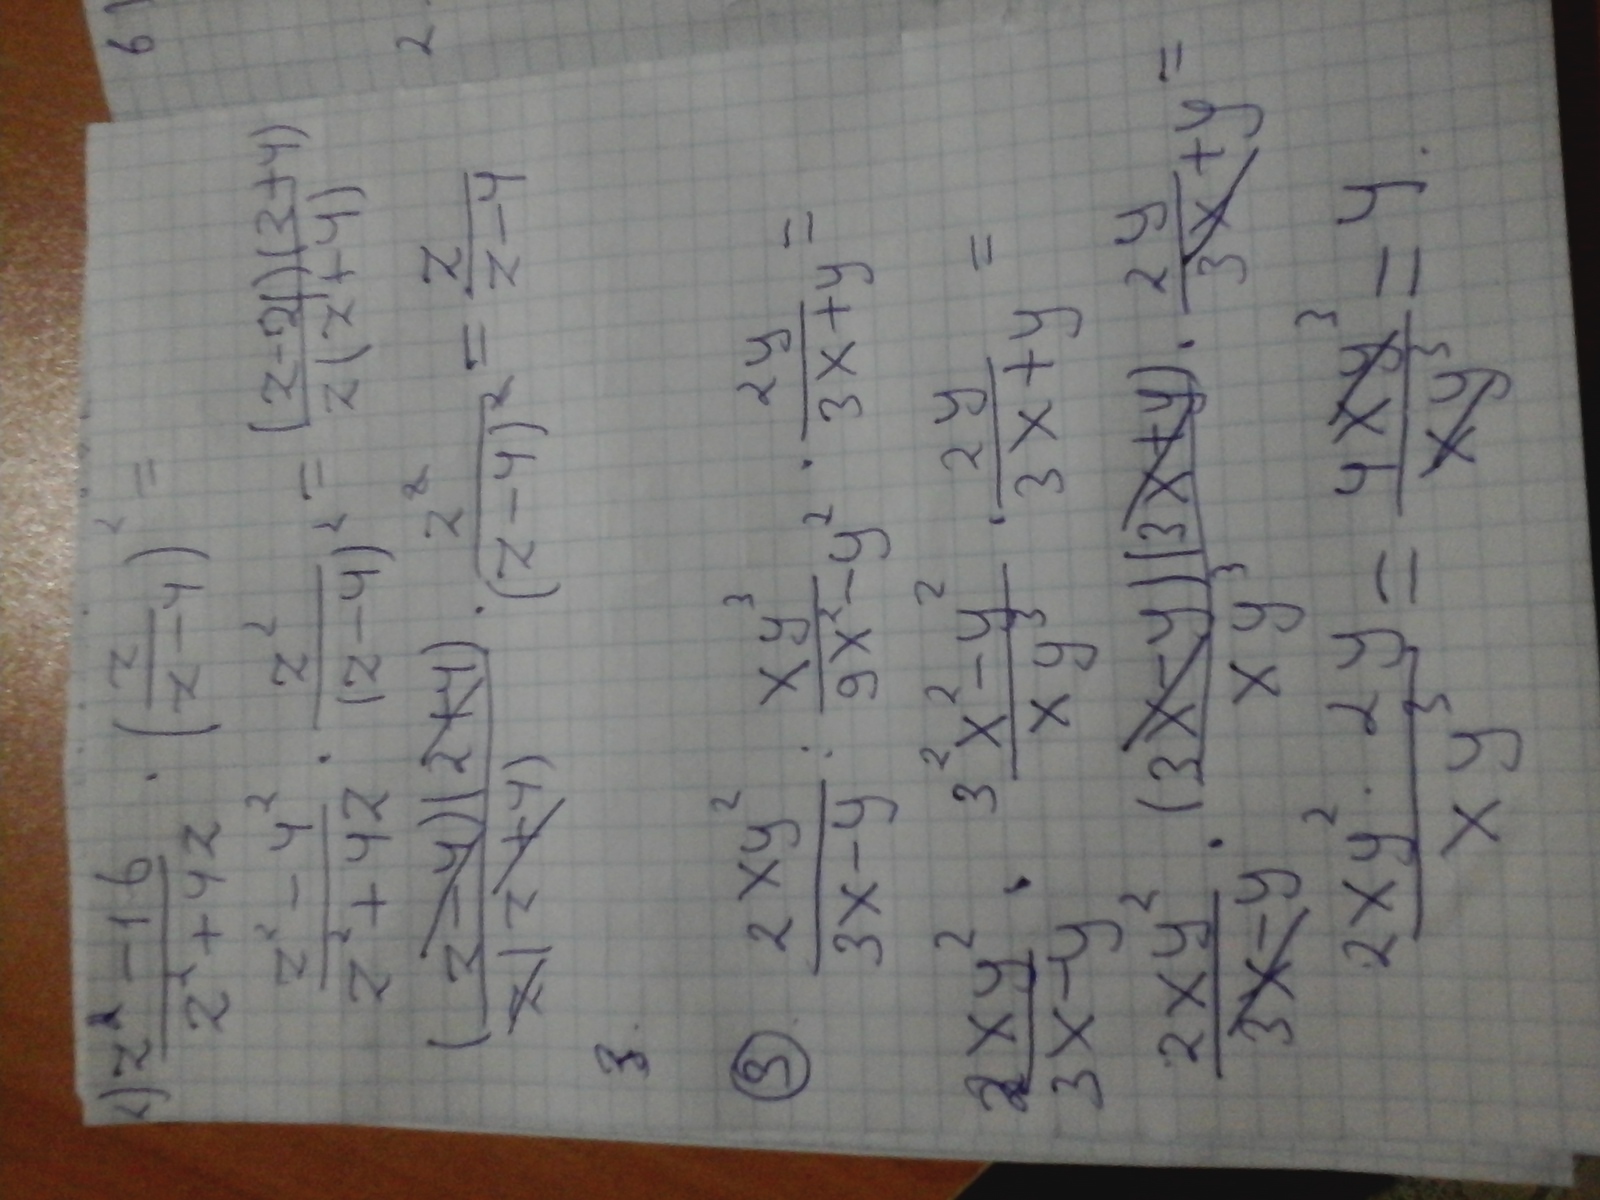 2) (z² - 16)/(z² + 4z) · (z/(z - 4))² =
(z² - 4²)/(z² + 4z) · z²/(z - 4)² = (z - 2)(z + 4)/z(z + 4)
(z - 4)(z + 4)/z(z + 4) · z²/(z - 4)² = z/(z - 4)
3.
③ 2xy²/(3x - y) : xy³/(9x² - y²) · 2y/(3x + y) =
2xy²/(3x - y) · (3²x² - y²)/xy³ · 2y/(3x + y) =
2xy²/(3x - y) · (3x - y)(3x + y)/xy³ · 2y/(3x + y) =
2xy² · 2y/xy³ = 4xy³/xy³ = 4.
6)
2